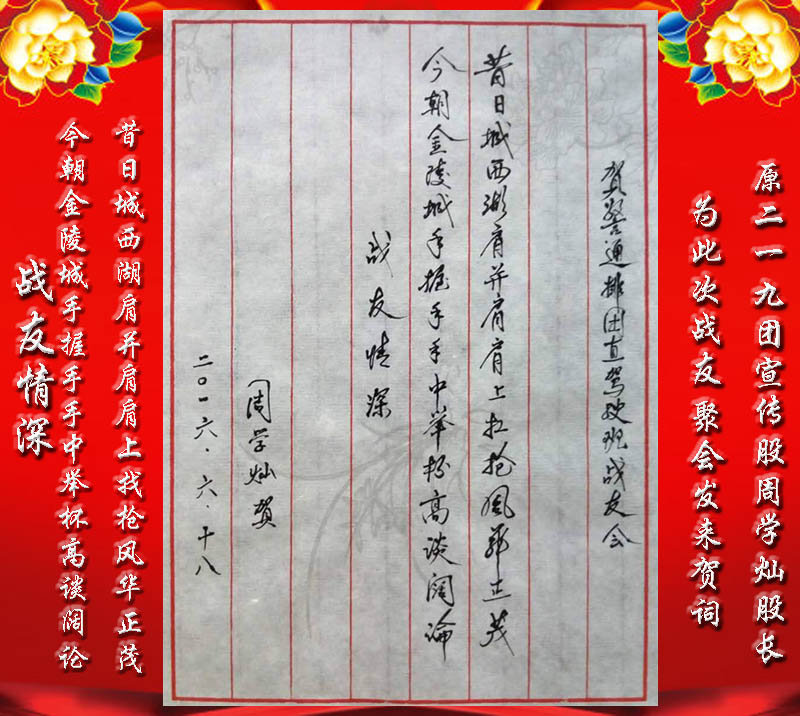 原二一九团宣传股周学灿股长
为此次战友聚会发来贺词
贺警通排团直驾驶班战友会
昔日城西湖肩并肩肩上扛抢风华正茂
今朝金陵城手握手手中举杯高谈阔论
战友情深
周学灿贺
二〇一六.六.十八
昔日城西湖肩并肩肩上找抢风华正茂
今朝金陵城手握手手中举杯高谈阔论
战友情深